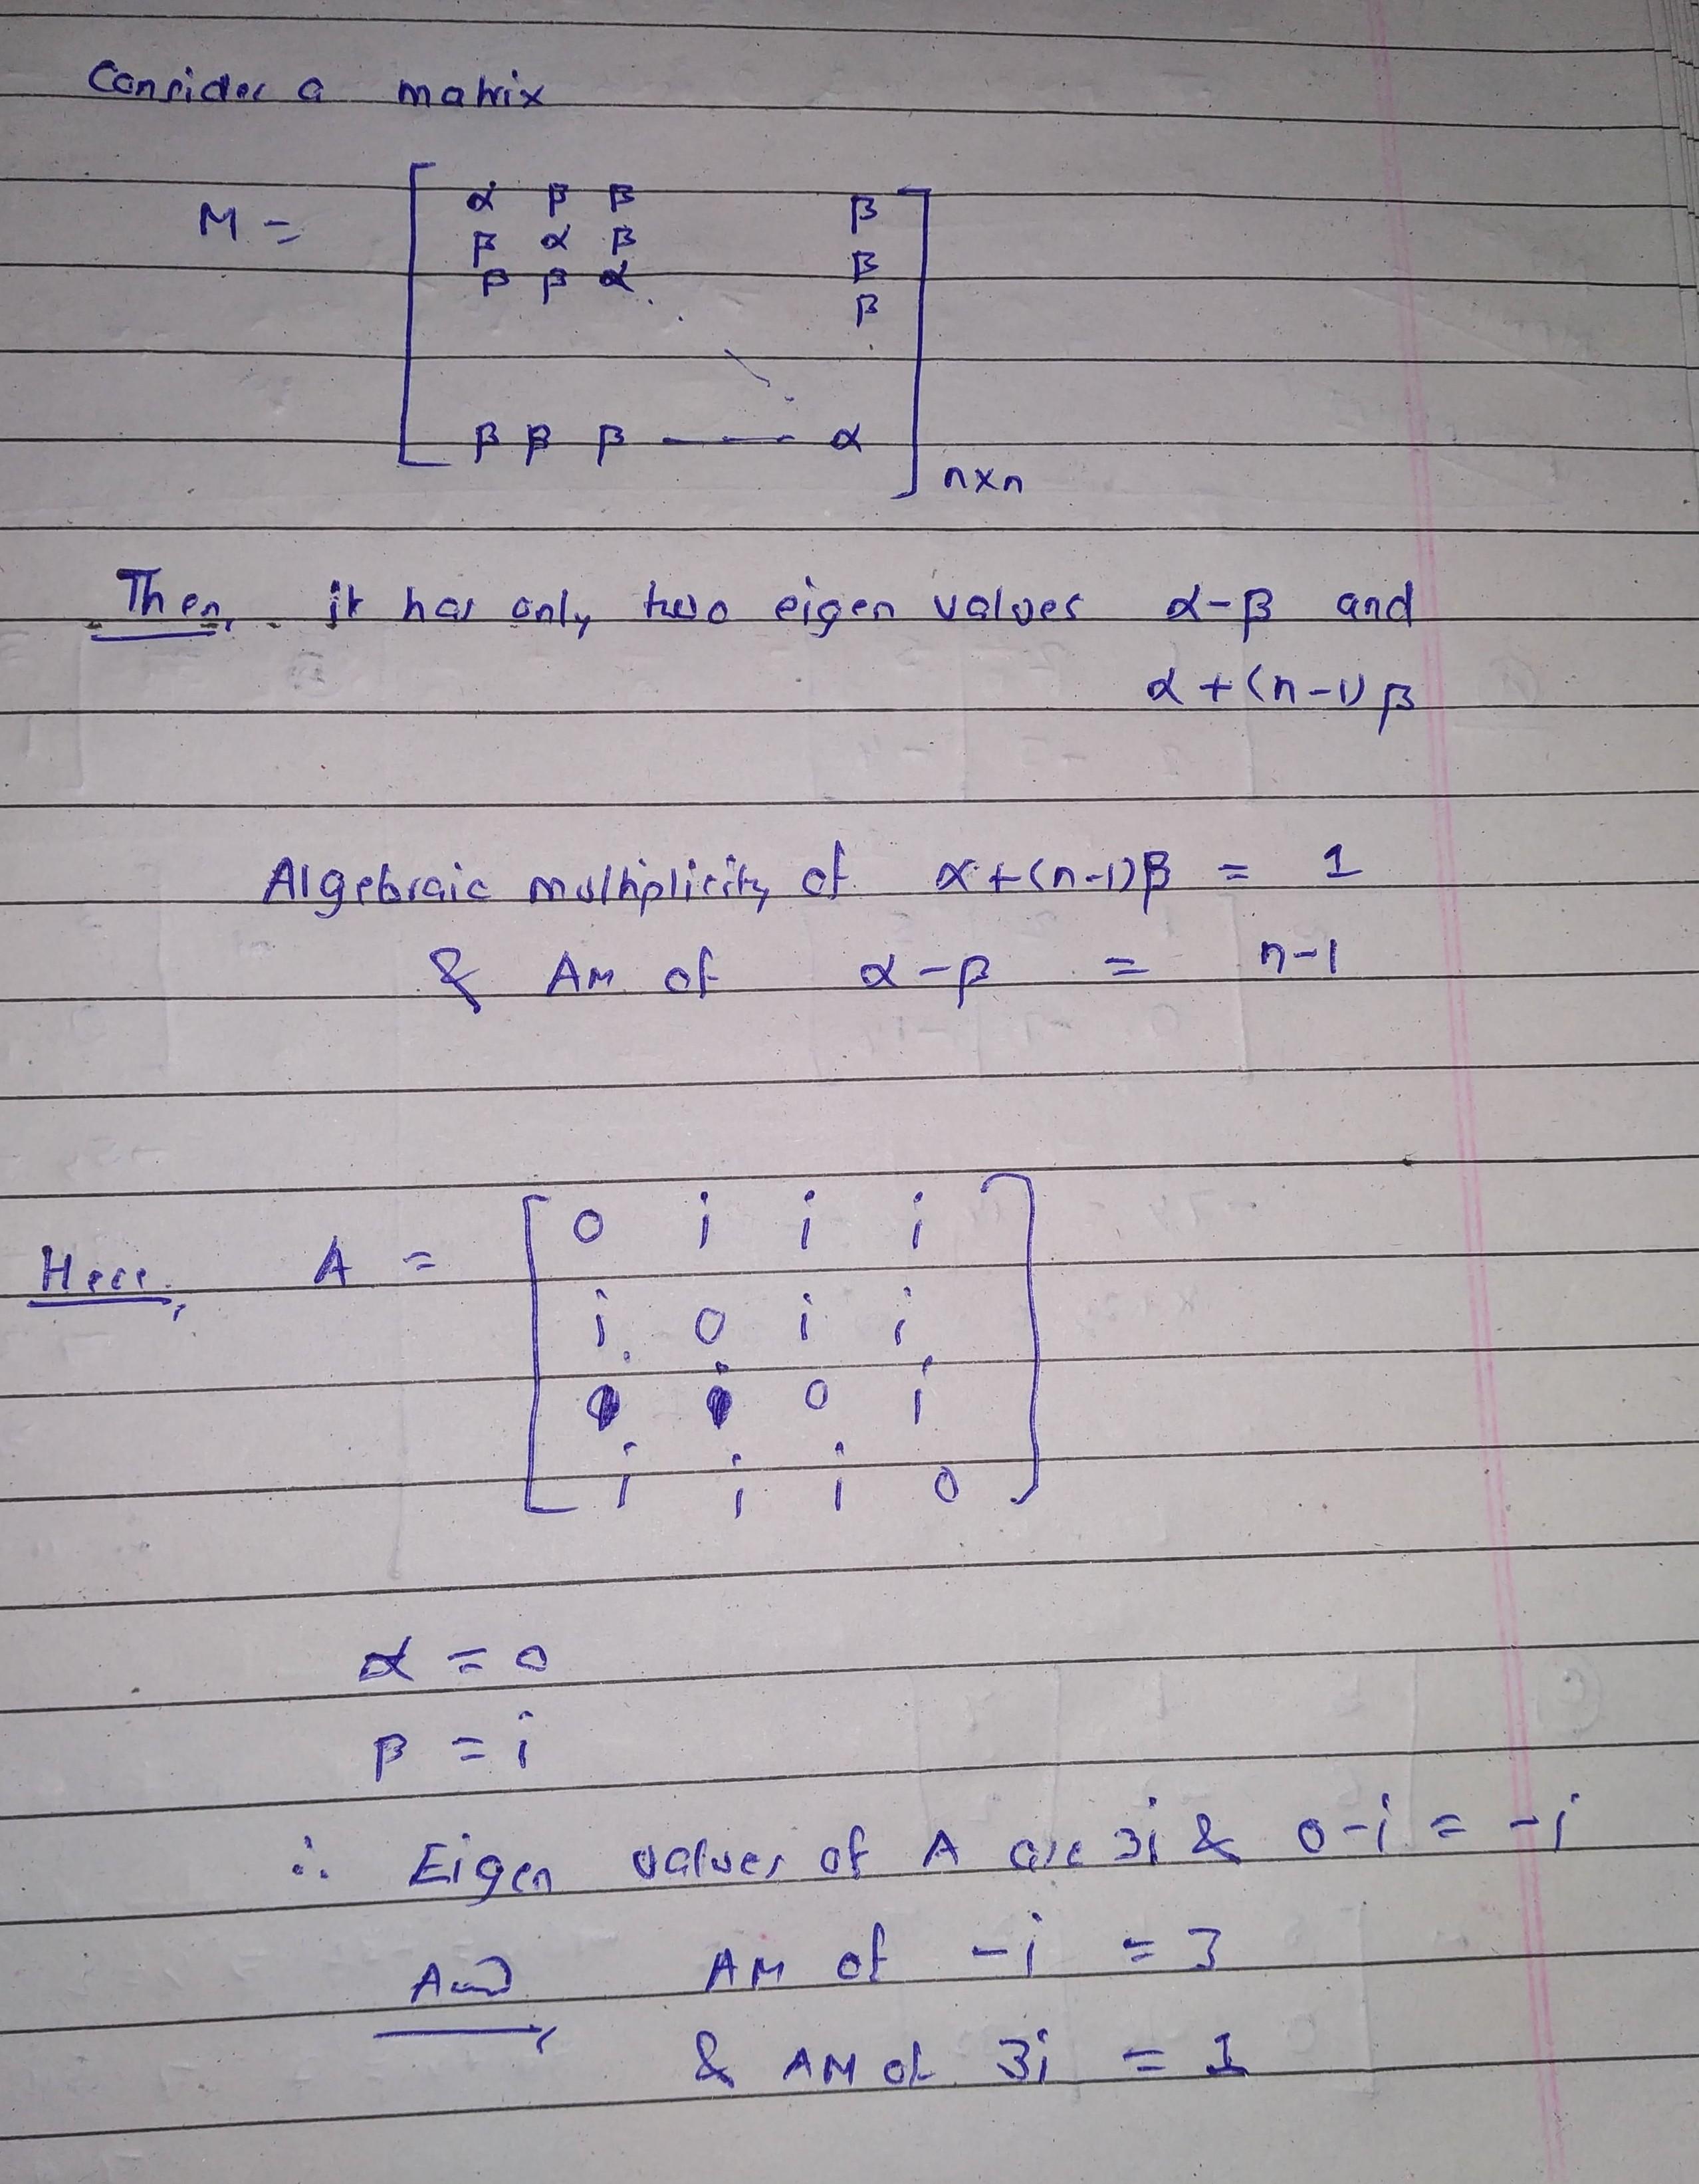 Consider a matrix
M = [ α β β β
β α β β
β β α . β
. .
β β β — — α ] n×n
Then, it has only two eigen values α-β and
α+(n-1)β
Algebraic multiplicity of α+(n-1)β = 1
& AM of α-β = n-1
Here, A = [ 0 i i i
i 0 i i
0 i
i i i 0 ]
α = 0
β = i
∴ Eigen values of A are 3i & 0-i = -i
And, AM of -i = 3
& AM of 3i = 1